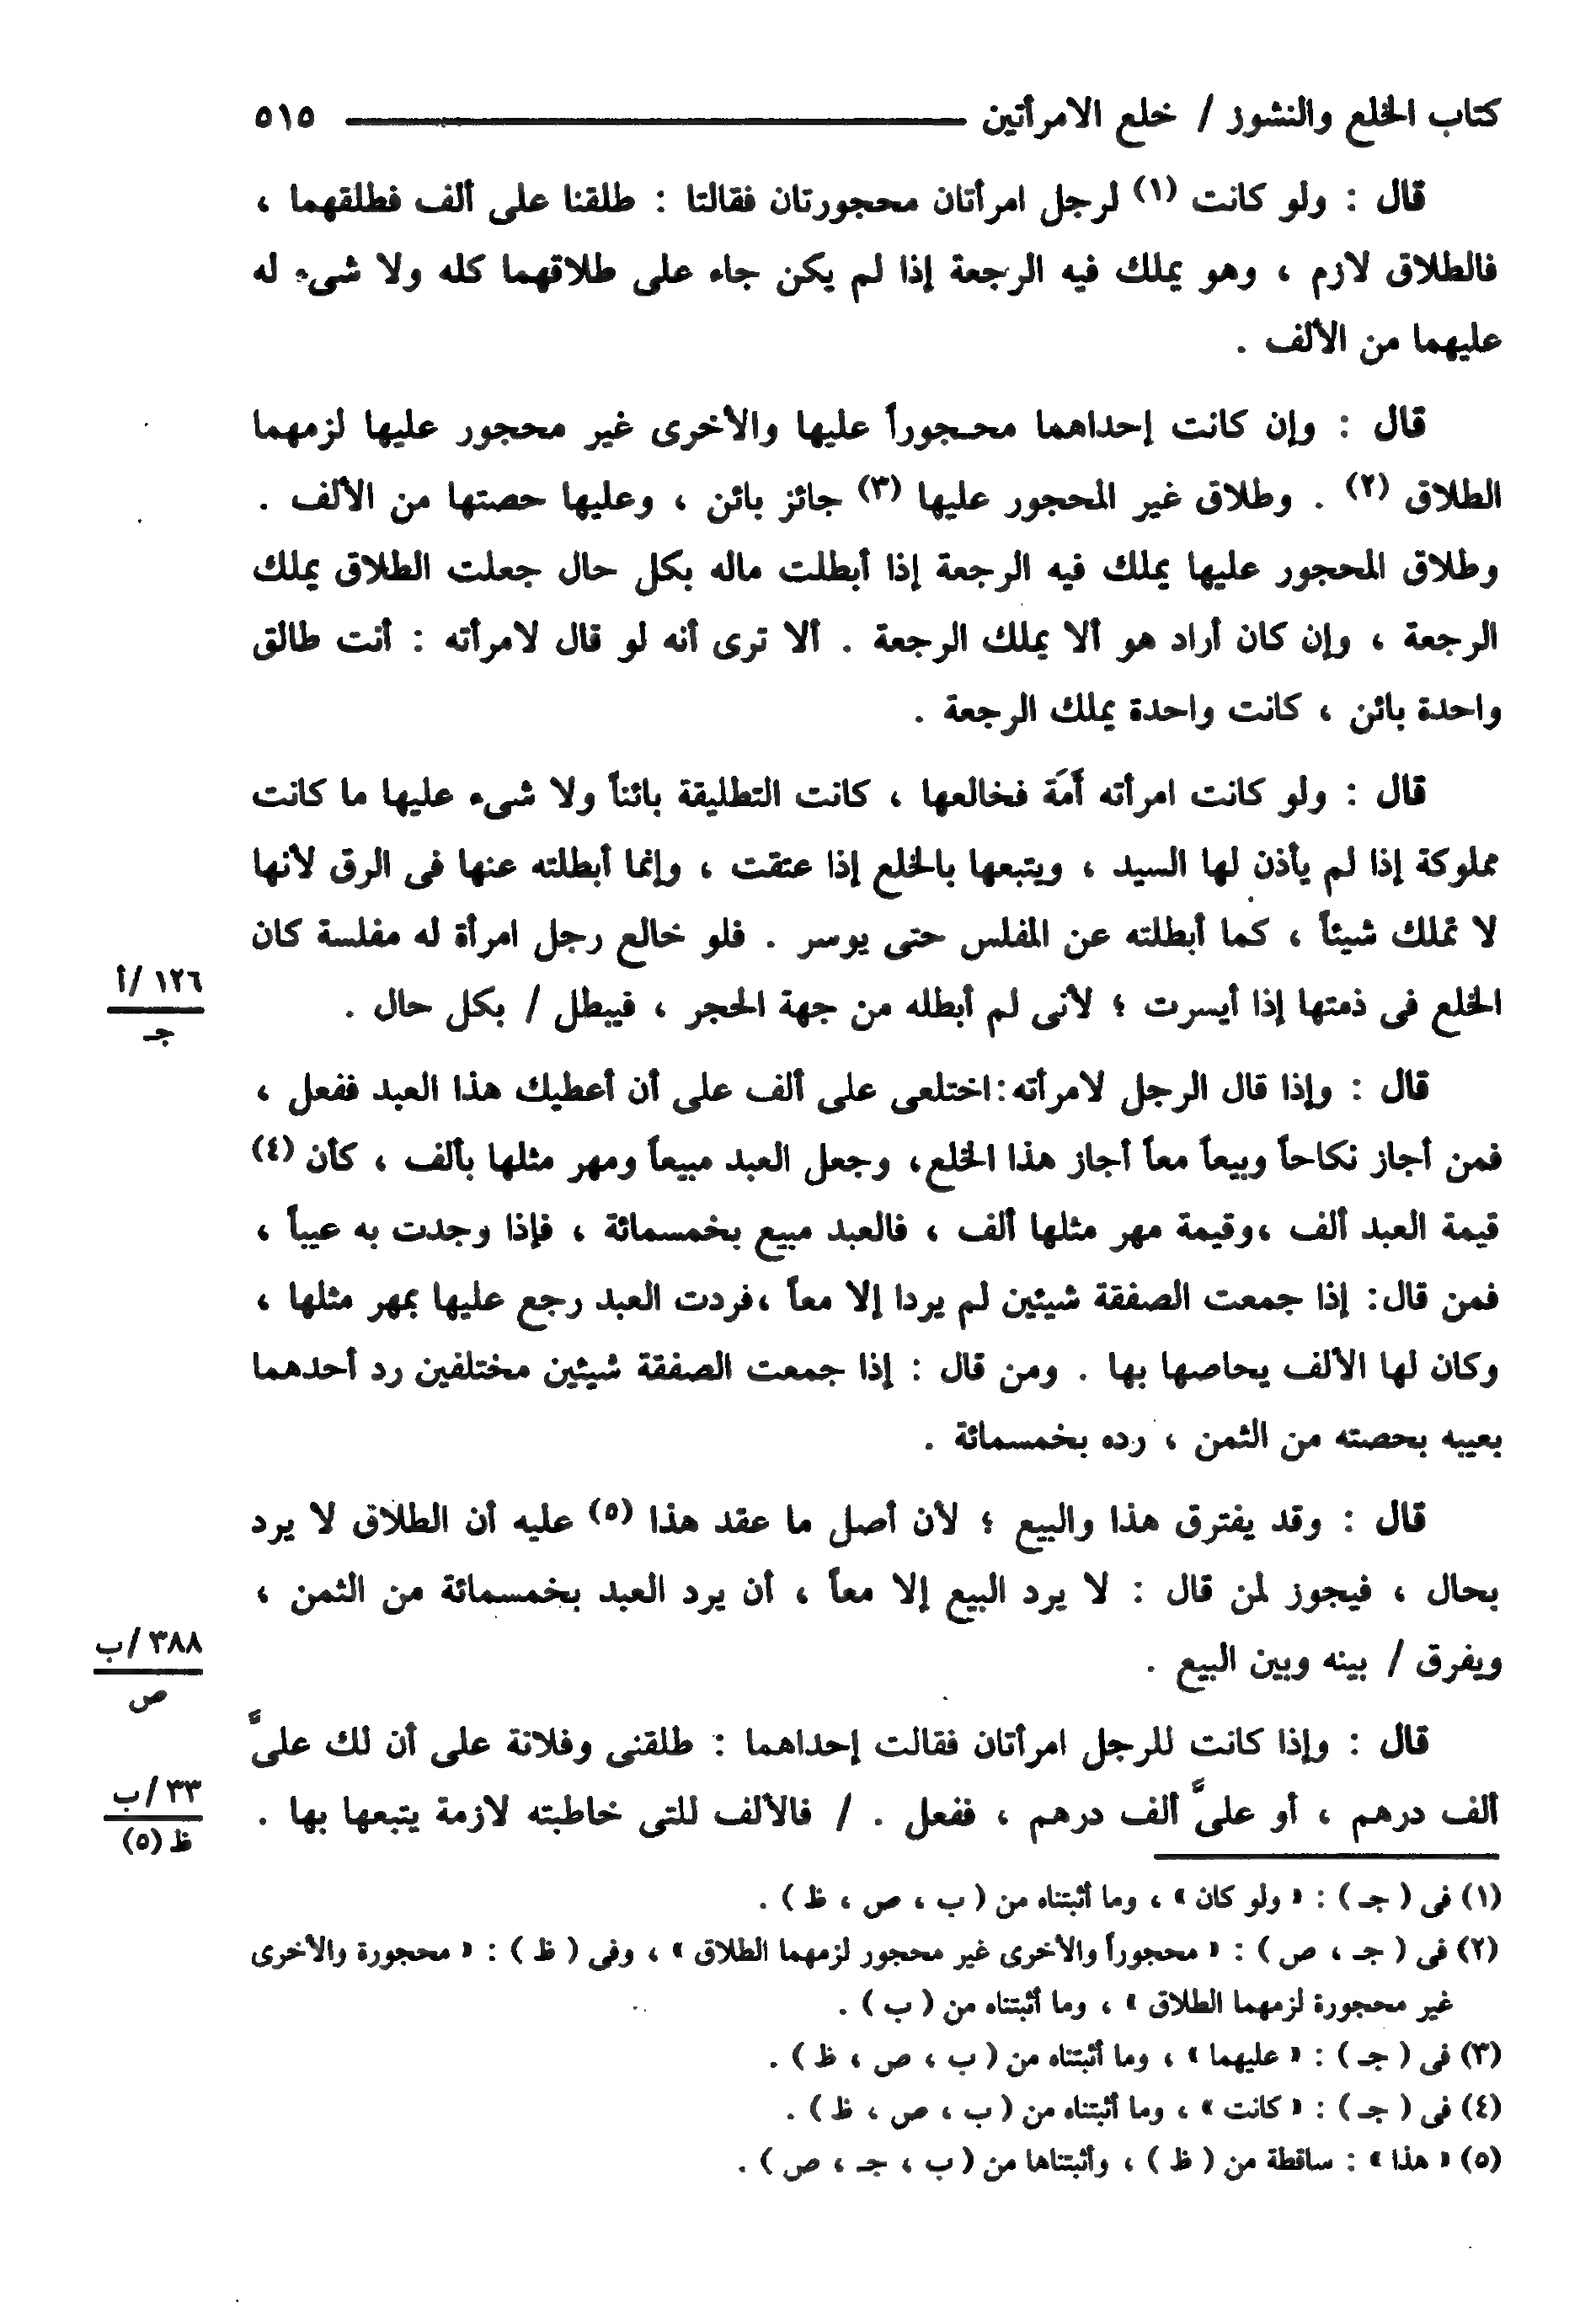 كتاب الخلع والنشوز / خلع الامرأتين ٥١٥
قال : ولو كانت (١) لرجل امرأتان محجورتان فقالتا : طلقنا على ألف فطلقهما ،
فالطلاق لازم ، وهو يملك فيه الرجعة إذا لم يكن جاء على طلاقهما كله ولا شىء له
عليهما من الألف .
قال : وإن كانت إحداهما محجوراً عليها والأخرى غير محجور عليها لزمهما
الطلاق (٢) . وطلاق غير المحجور عليها (٣) جائز بائن ، وعليها حصتها من الألف .
وطلاق المحجور عليها يملك فيه الرجعة إذا أبطلت ماله بكل حال جعلت الطلاق يملك
الرجعة ، وإن كان أراد هو ألا يملك الرجعة . ألا ترى أنه لو قال لامرأته : أنت طالق
واحدة بائن ، كانت واحدة يملك الرجعة .
قال : ولو كانت امرأته أَمَة فخالعها ، كانت التطليقة بائناً ولا شىء عليها ما كانت
مملوكة إذا لم يأذن لها السيد ، ويتبعها بالخلع إذا عتقت ، وإنما أبطلته عنها فى الرق لأنها
لا تملك شيئاً ، كما أبطلته عن المفلس حتى يوسر . فلو خالع رجل امرأة له مفلسة كان
الخلع فى ذمتها إذا أيسرت ؛ لأنى لم أبطله من جهة الحجر ، فيبطل / بكل حال .
١٢٦ /أ
جـ
قال : وإذا قال الرجل لامرأته:اختلعى على ألف على أن أعطيك هذا العبد ففعل ،
فمن أجاز نكاحاً وبيعاً معاً أجاز هذا الخلع، وجعل العبد مبيعاً ومهر مثلها بألف ، كأن (٤)
قيمة العبد ألف ،وقيمة مهر مثلها ألف ، فالعبد مبيع بخمسمائة ، فإذا وجدت به عيباً ،
فمن قال: إذا جمعت الصفقة شيئين لم يردا إلا معاً ،فردت العبد رجع عليها بمهر مثلها ،
وكان لها الألف يحاصها بها . ومن قال : إذا جمعت الصفقة شيئين مختلفين رد أحدهما
بعيبه بحصته من الثمن ، رده بخمسمائة .
قال : وقد يفترق هذا والبيع ؛ لأن أصل ما عقد هذا (٥) عليه أن الطلاق لا يرد
بحال ، فيجوز لمن قال : لا يرد البيع إلا معاً ، أن يرد العبد بخمسمائة من الثمن ،
ويفرق / بينه وبين البيع .
٣٨٨ /ب
ص
قال : وإذا كانت للرجل امرأتان فقالت إحداهما : طلقنى وفلانة على أن لك علىَّ
ألف درهم ، أو علىَّ ألف درهم ، ففعل . / فالألف للتى خاطبته لازمة يتبعها بها .
٣٣ /ب
ظ (٥)
(١) فى ( جـ ) : « ولو كان » ، وما أثبتناه من ( ب ، ص ، ظ ) .
(٢) فى ( جـ ، ص ) : « محجوراً والأخرى غير محجور لزمهما الطلاق » ، وفى ( ظ ) : « محجورة والأخرى
غير محجورة لزمهما الطلاق » ، وما أثبتناه من ( ب ) .
(٣) فى ( جـ ) : « عليهما » ، وما أثبتناه من ( ب ، ص ، ظ ) .
(٤) فى ( جـ ) : « كانت » ، وما أثبتناه من ( ب ، ص ، ظ ) .
(٥) « هذا » : ساقطة من ( ظ ) ، وأثبتناها من ( ب ، جـ ، ص ) .